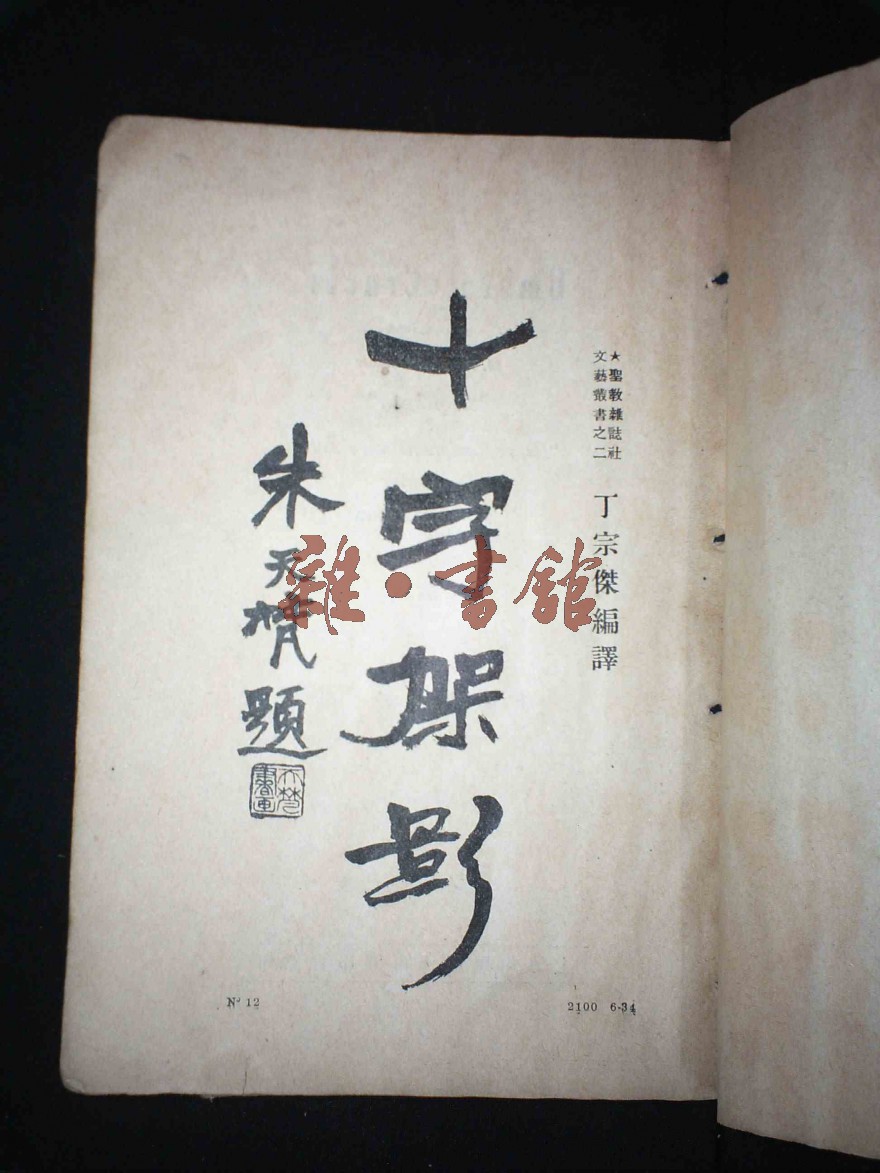 ★聖教雜誌社
文藝叢書之二
丁宗傑編譯
十字架影
朱天梵題
天梵書画
雜·書館
Nº 12
2100 6-34